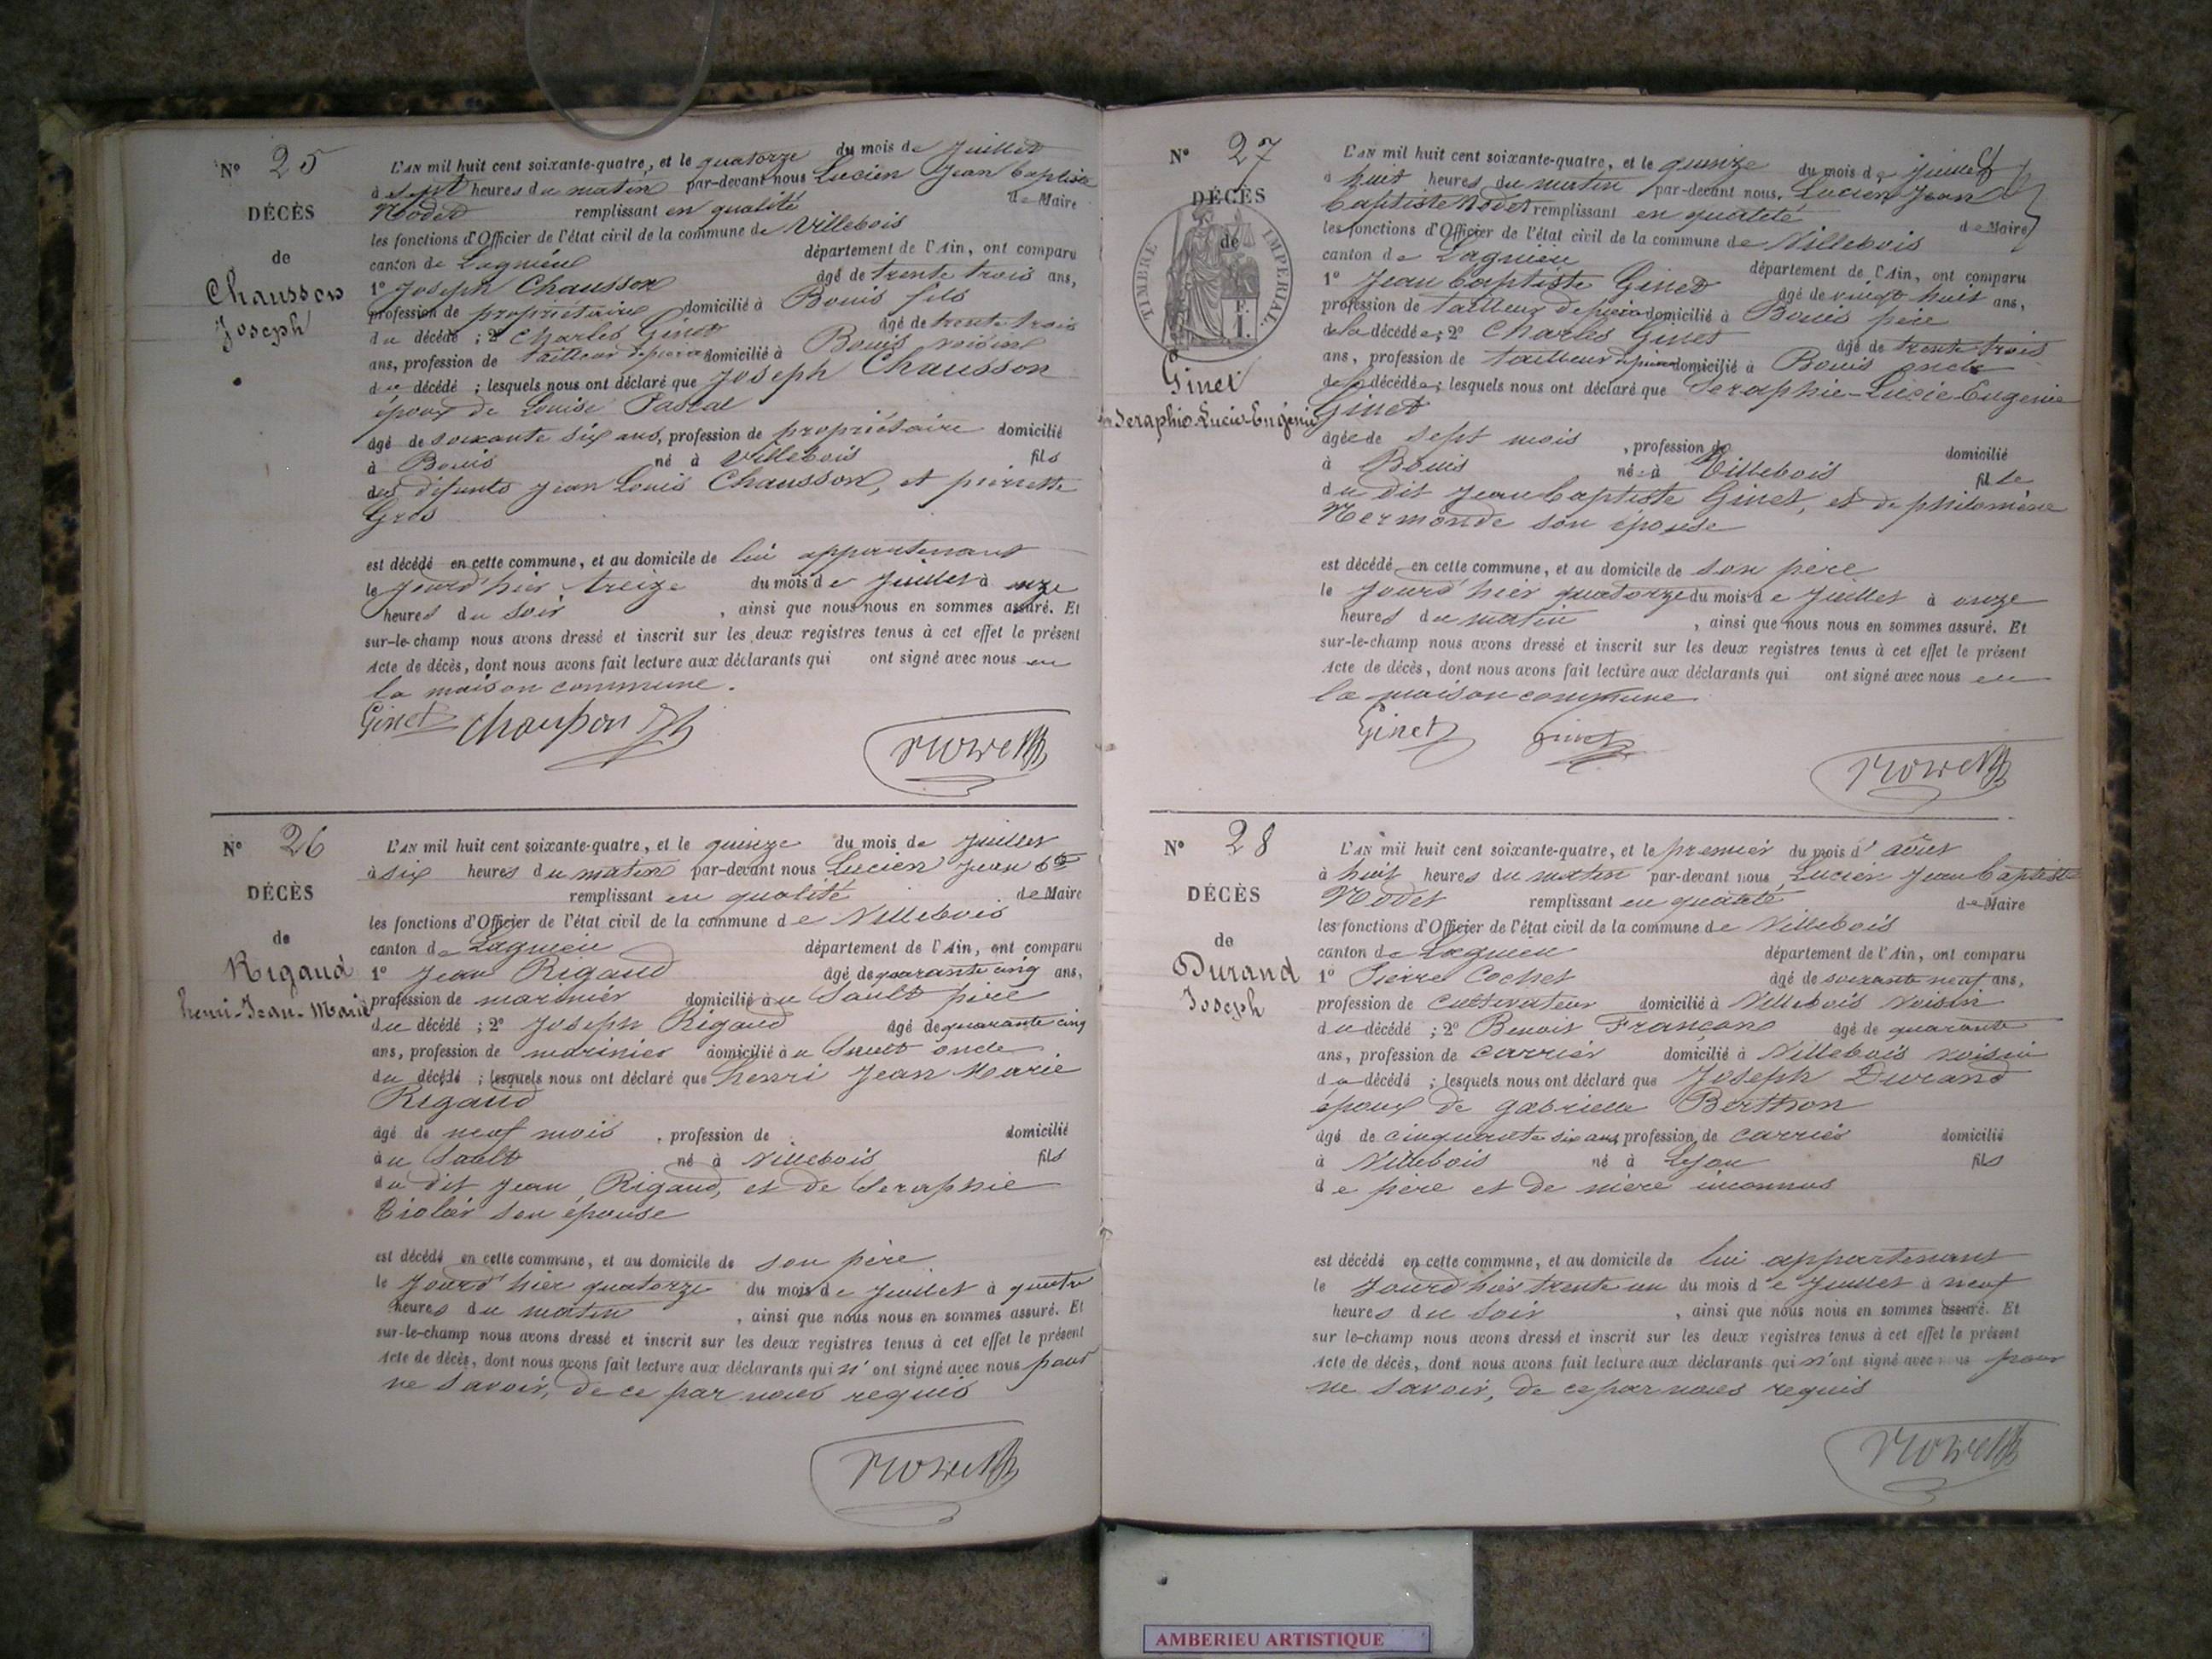 N° 25
DÉCÈS
de
Chausson
Joseph
L'AN mil huit cent soixante-quatre, et le quatorze du mois de Juillet
à sept heures du matin par-devant nous Lucien Jean baptiste
Nodet remplissant en qualité de Maire
les fonctions d'Officier de l'état civil de la commune de Villebois
canton de Lagnieu département de l'Ain, ont comparu
1° Joseph Chausson âgé de trente trois ans,
profession de propriétaire domicilié à Bouis fils
du décédé ; 2° Charles Ginet âgé de trente trois
ans, profession de tailleur de pierre domicilié à Bouis voisin
du décédé ; lesquels nous ont déclaré que Joseph Chausson
époux de Louise Pascal
âgé de soixante six ans, profession de propriétaire domicilié
à Bouis né à Villebois fils
des défunts Jean Louis Chausson, et pierrette
Gros
est décédé en cette commune, et au domicile de lui appartenant
le Jourd'hier treize du mois de Juillet à onze
heures du soir , ainsi que nous nous en sommes assuré. Et
sur-le-champ nous avons dressé et inscrit sur les deux registres tenus à cet effet le présent
Acte de décès, dont nous avons fait lecture aux déclarants qui ont signé avec nous en
la maison commune.
Ginet Chausson
N° 26
DÉCÈS
de
Rigaud
henri-Jean-Marie
L'AN mil huit cent soixante-quatre, et le quinze du mois de Juillet
à six heures du matin par-devant nous Lucien Jean bte
remplissant en qualité de Maire
les fonctions d'Officier de l'état civil de la commune de Villebois
canton de Lagnieu département de l'Ain, ont comparu
1° Jean Rigaud âgé de quarante cinq ans,
profession de marinier domicilié au Sault père
du décédé ; 2° Joseph Rigaud âgé de quarante cinq
ans, profession de marinier domicilié au Sault oncle
du décédé ; lesquels nous ont déclaré que henri Jean Marie
Rigaud
âgé de neuf mois , profession de domicilié
au Sault né à Villebois fils
du dit Jean Rigaud, et de Seraphie
son épouse
est décédé en cette commune, et au domicile de son père
le Jourd'hier quatorze du mois de Juillet à quatre
heures du matin , ainsi que nous nous en sommes assuré. Et
sur-le-champ nous avons dressé et inscrit sur les deux registres tenus à cet effet le présent
Acte de décès, dont nous avons fait lecture aux déclarants qui n'ont signé avec nous pour
ne savoir, de ce par nous requis
N° 27
DÉCÈS
de
TIMBRE IMPÉRIAL
Ginet
Seraphie-Lucie-Eugénie
L'AN mil huit cent soixante-quatre, et le quinze du mois de juillet
à huit heures du matin par-devant nous, Lucien Jean
baptiste Nodet remplissant en qualité de Maire
les fonctions d'Officier de l'état civil de la commune de Villebois
canton de Lagnieu département de l'Ain, ont comparu
1° Jean baptiste Ginet âgé de vingt huit ans,
profession de tailleur de pierre domicilié à Bouis père
de la décédée ; 2° Charles Ginet âgé de trente trois
ans, profession de tailleur de pierre domicilié à Bouis oncle
de la décédée ; lesquels nous ont déclaré que Seraphie-Lucie Eugenie
Ginet
âgée de sept mois , profession de domicilié
à Bouis né à Villebois fille
du dit Jean baptiste Ginet, et de philomène
Mermonde son épouse
est décédé en cette commune, et au domicile de son père
le Jourd'hier quatorze du mois de Juillet à onze
heures du matin , ainsi que nous nous en sommes assuré. Et
sur-le-champ nous avons dressé et inscrit sur les deux registres tenus à cet effet le présent
Acte de décès, dont nous avons fait lecture aux déclarants qui ont signé avec nous en
la maison commune
Ginet Ginet
N° 28
DÉCÈS
de
Durand
Joseph
L'AN mil huit cent soixante-quatre, et le premier du mois d'août
à huit heures du matin par-devant nous Lucien Jean baptiste
Nodet remplissant en qualité de Maire
les fonctions d'Officier de l'état civil de la commune de Villebois
canton de Lagnieu département de l'Ain, ont comparu
1° Pierre Cochet âgé de soixante neuf ans,
profession de cultivateur domicilié à Villebois voisin
du décédé ; 2° Benoit Françon âgé de quarante
ans, profession de carrier domicilié à Villebois voisin
du décédé ; lesquels nous ont déclaré que Joseph Durand
époux de gabrielle Berthon
âgé de cinquante six ans, profession de carrier domicilié
à Villebois né à Lyon fils
de père et de mère inconnus
est décédé en cette commune, et au domicile de lui appartenant
le Jourd'hier trente un du mois de Juillet à neuf
heures du soir , ainsi que nous nous en sommes assuré. Et
sur-le-champ nous avons dressé et inscrit sur les deux registres tenus à cet effet le présent
Acte de décès, dont nous avons fait lecture aux déclarants qui n'ont signé avec nous pour
ne savoir, de ce par nous requis
AMBERIEU ARTISTIQUE